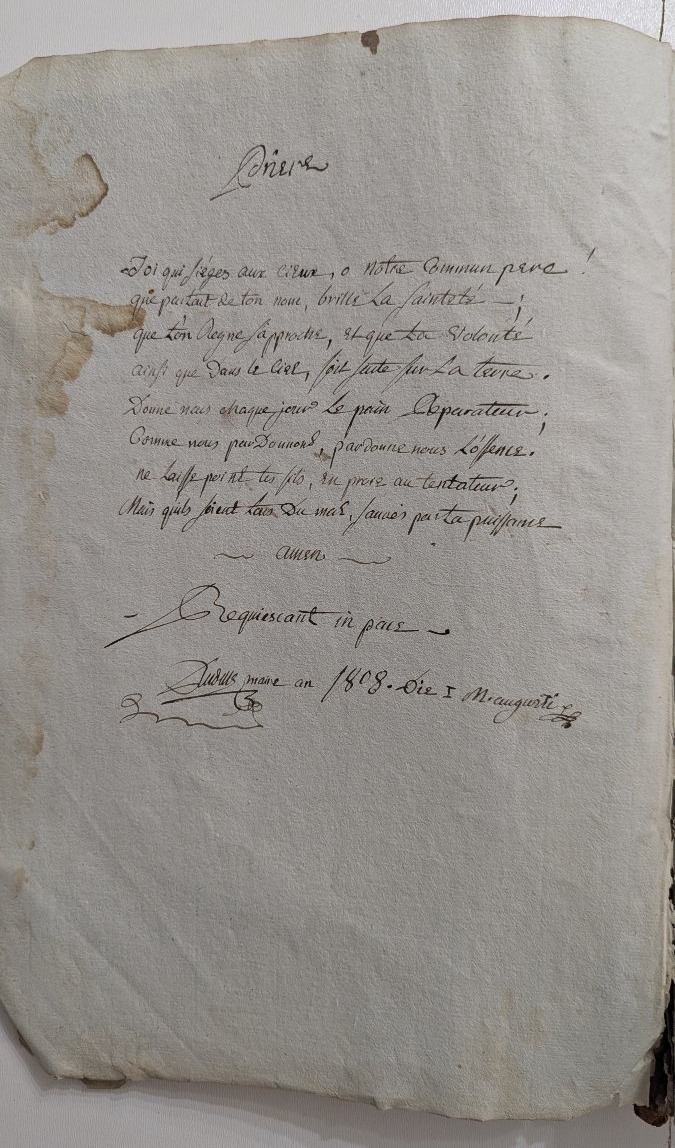 Prière
Toi qui siéges aux cieux, o notre Commun pere !
que partout de ton nom, brille La Sainteté — ;
que ton Regne s'approche, et que ta Volonté
ainsi que dans le Ciel, soit faite sur La terre.
Donne nous chaque jour Le pain Reparateur ;
Comme nous pardonnons, pardonne nous L'offense.
ne Laisse point tes fils, en proie au tentateur ;
Mais qu'ils soient tous du mal, sauvés par ta puissance
amen
Requiescant in pace
maire an 1808. Die I M. augusti